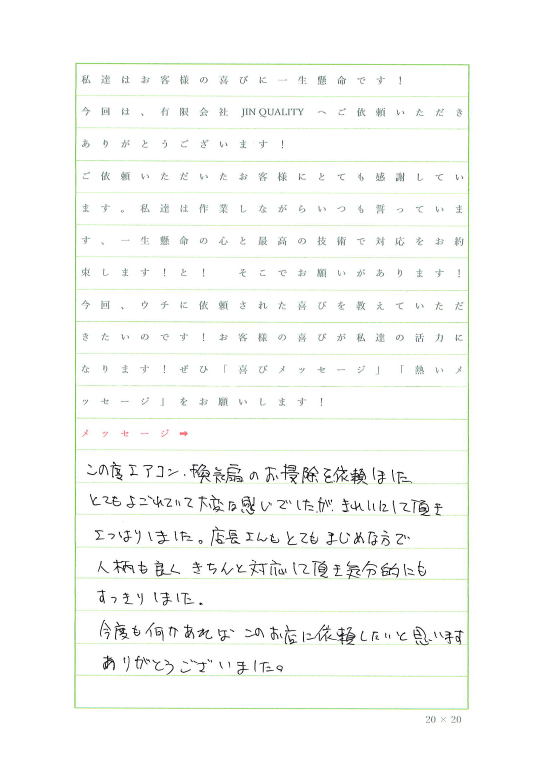 私達はお客様の喜びに一生懸命です！
今回は、有限会社 JIN QUALITY へご依頼いただき
ありがとうございます！
ご依頼いただいたお客様にとても感謝してい
ます。私達は作業しながらいつも誓っていま
す、一生懸命の心と最高の技術で対応をお約
束します！と！　そこでお願いがあります！
今回、ウチに依頼された喜びを教えていただ
きたいのです！お客様の喜びが私達の活力に
なります！ぜひ「喜びメッセージ」「熱いメ
ッセージ」をお願いします！
メッセージ➡
この度エアコン、換気扇のお掃除を依頼しました
とてもよごれていて大変な感じでしたが、きれいにして頂き
さっぱりしました。店長さんもとてもまじめな方で
人柄も良く きちんと対応して頂き気分的にも
すっきりしました。
今度も何かあれば このお店に依頼したいと思います
ありがとうございました。
20 × 20